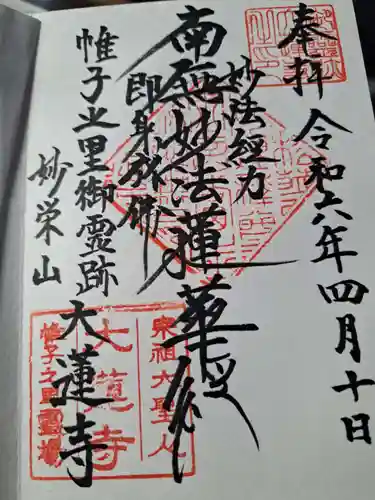 奉拝
令和六年四月十日
妙法經力
南無妙法蓮華経
即身成佛
帷子之里御霊跡
妙栄山
大蓮寺
宗祖大聖人
大蓮寺
帷子之里霊場